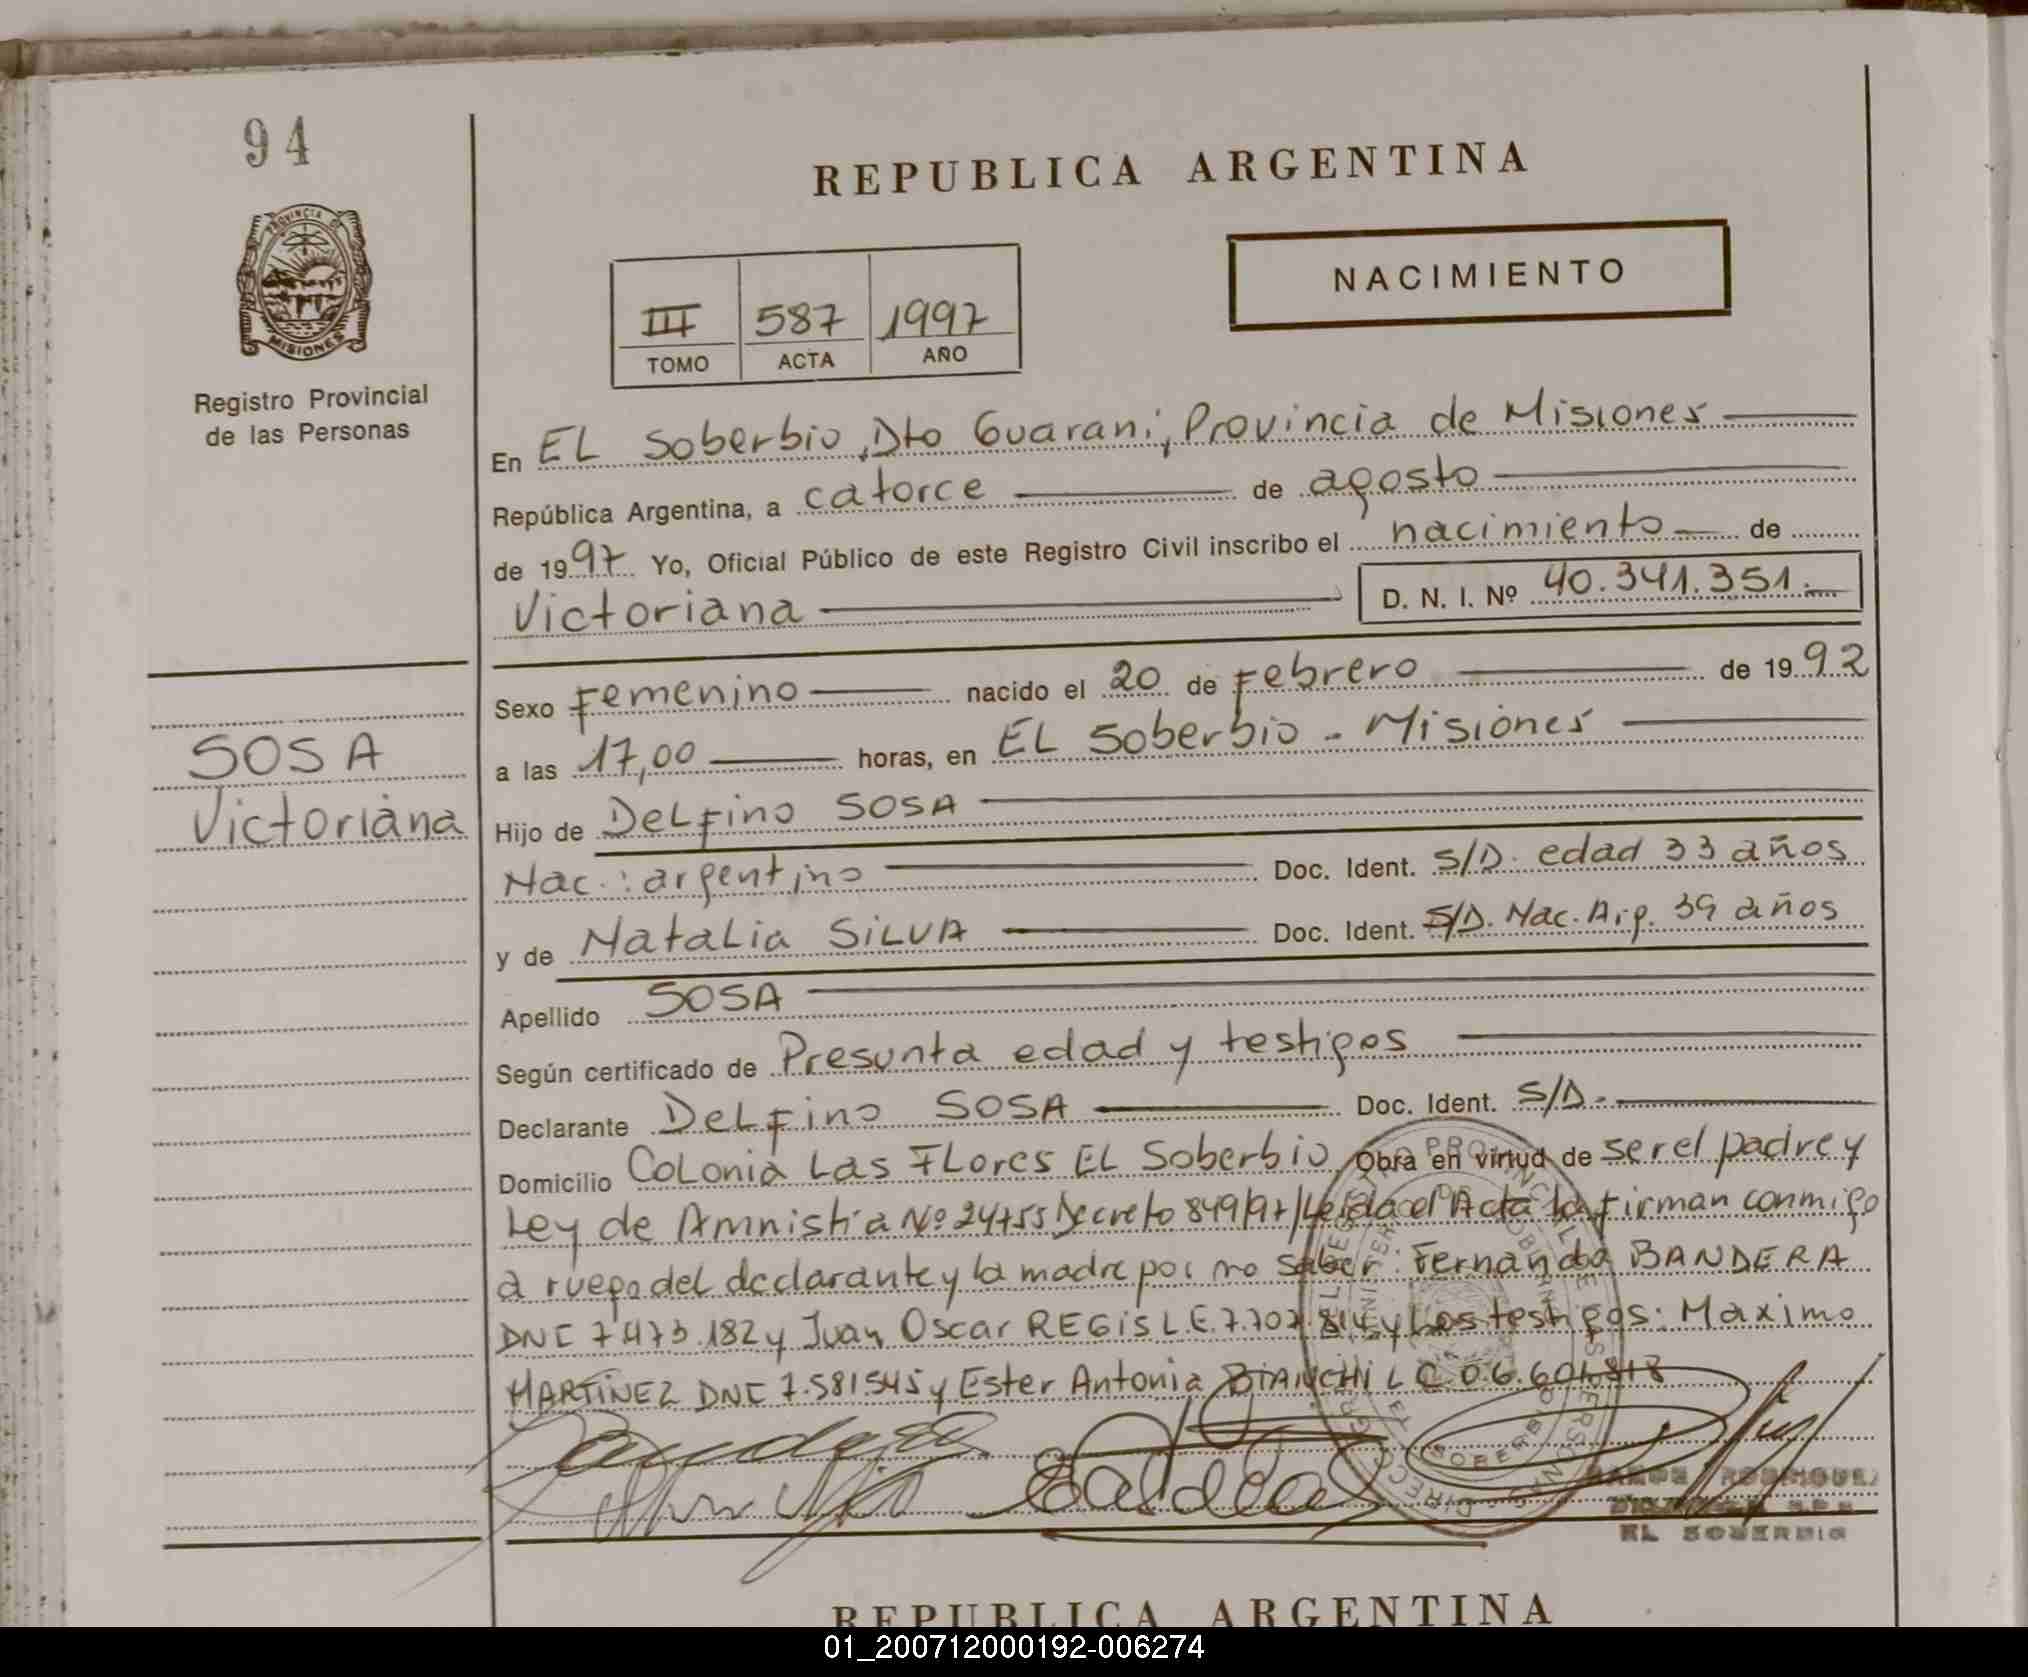 94
PROVINCIA DE
MISIONES
Registro Provincial
de las Personas
REPUBLICA ARGENTINA
NACIMIENTO
III 587 1997
TOMO ACTA AÑO
En EL Soberbio, Dto Guarani, Provincia de Misiones
República Argentina, a catorce de agosto
de 1997 Yo, Oficial Público de este Registro Civil inscribo el nacimiento de
Victoriana D. N. I. Nº 40.341.351.
SOSA
Victoriana
Sexo Femenino nacido el 20 de Febrero de 1992
a las 17,00 horas, en EL Soberbio - Misiones
Hijo de Delfino SOSA
Nac.: argentino Doc. Ident. S/D. edad 33 años
y de Natalia SILVA Doc. Ident. S/D. Nac. Arg. 39 años
Apellido SOSA
Según certificado de Presunta edad y testigos
Declarante Delfino SOSA Doc. Ident. S/D.
Domicilio Colonia Las Flores EL Soberbio Obra en virtud de ser el padre y
Ley de Amnistia Nº 24755 Decreto 849/97/Leida el Acta la firman conmigo
a ruego del declarante y la madre por no saber: Fernando BANDERA
DNI 7.473.182 y Juan Oscar REGIS L.E. 7.707.814 y Los testigos: Maximo
MARTINEZ DNI 7.581545 y Ester Antonia BIANCHI L C 06.601.818
RODRIGUEZ
EL SOBERBIO
REPUBLICA ARGENTINA
01_200712000192-006274